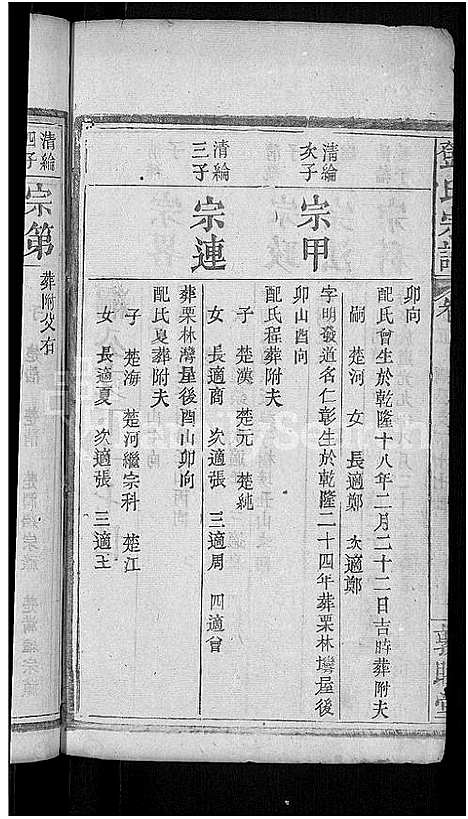 鄧氏宗譜
卷
卯向
配氏曾生於乾隆十八年二月二十二日吉時葬附夫
嗣 楚河 女 長適鄭 次適鄭
清綸次子
宗甲
字明發道名仁彰生於乾隆二十四年葬栗林塆屋後
卯山酉向
配氏程葬附夫
子 楚漢 楚元 楚純
女 長適商 次適張 三適周 四適曾
清綸三子
宗連
葬栗林灣屋後酉山卯向
配氏夏葬附夫
子 楚海 楚河繼宗科 楚江
女 長適夏 次適張 三適王
清綸四子
宗第
葬附父右